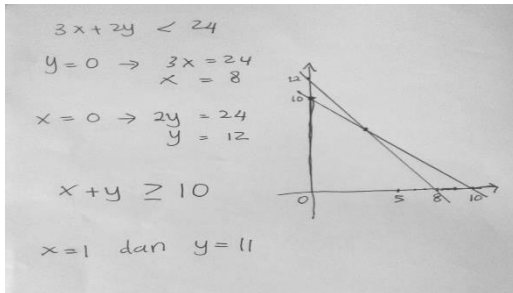 3x + 2y < 24
y = 0 → 3x = 24
x = 8
x = 0 → 2y = 24
y = 12
x + y ≥ 10
x = 1 dan y = 11
12
10
0
5
8
10